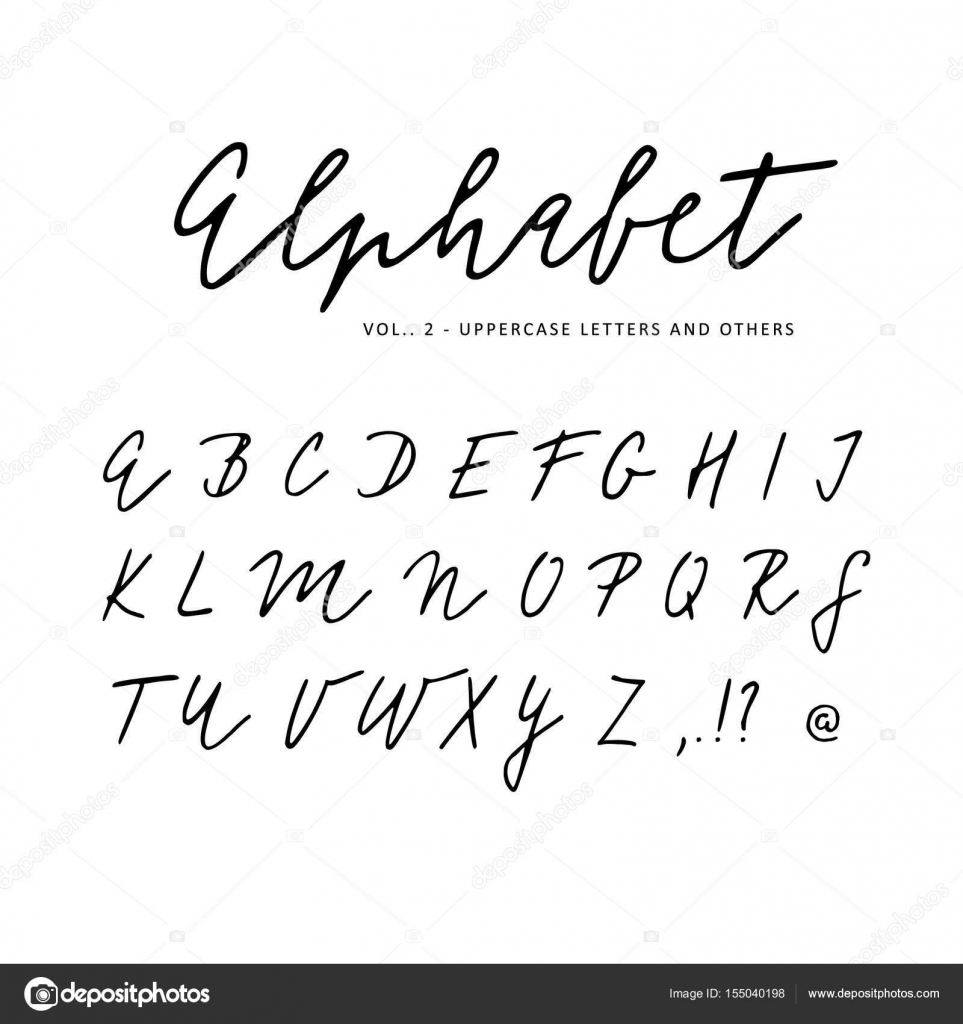 Alphabet
VOL.. 2 - UPPERCASE LETTERS AND OTHERS
A B C D E F G H I J
K L M N O P Q R S
T U V W X Y Z ,.!? @
depositphotos Image ID: 155040198 www.depositphotos.com